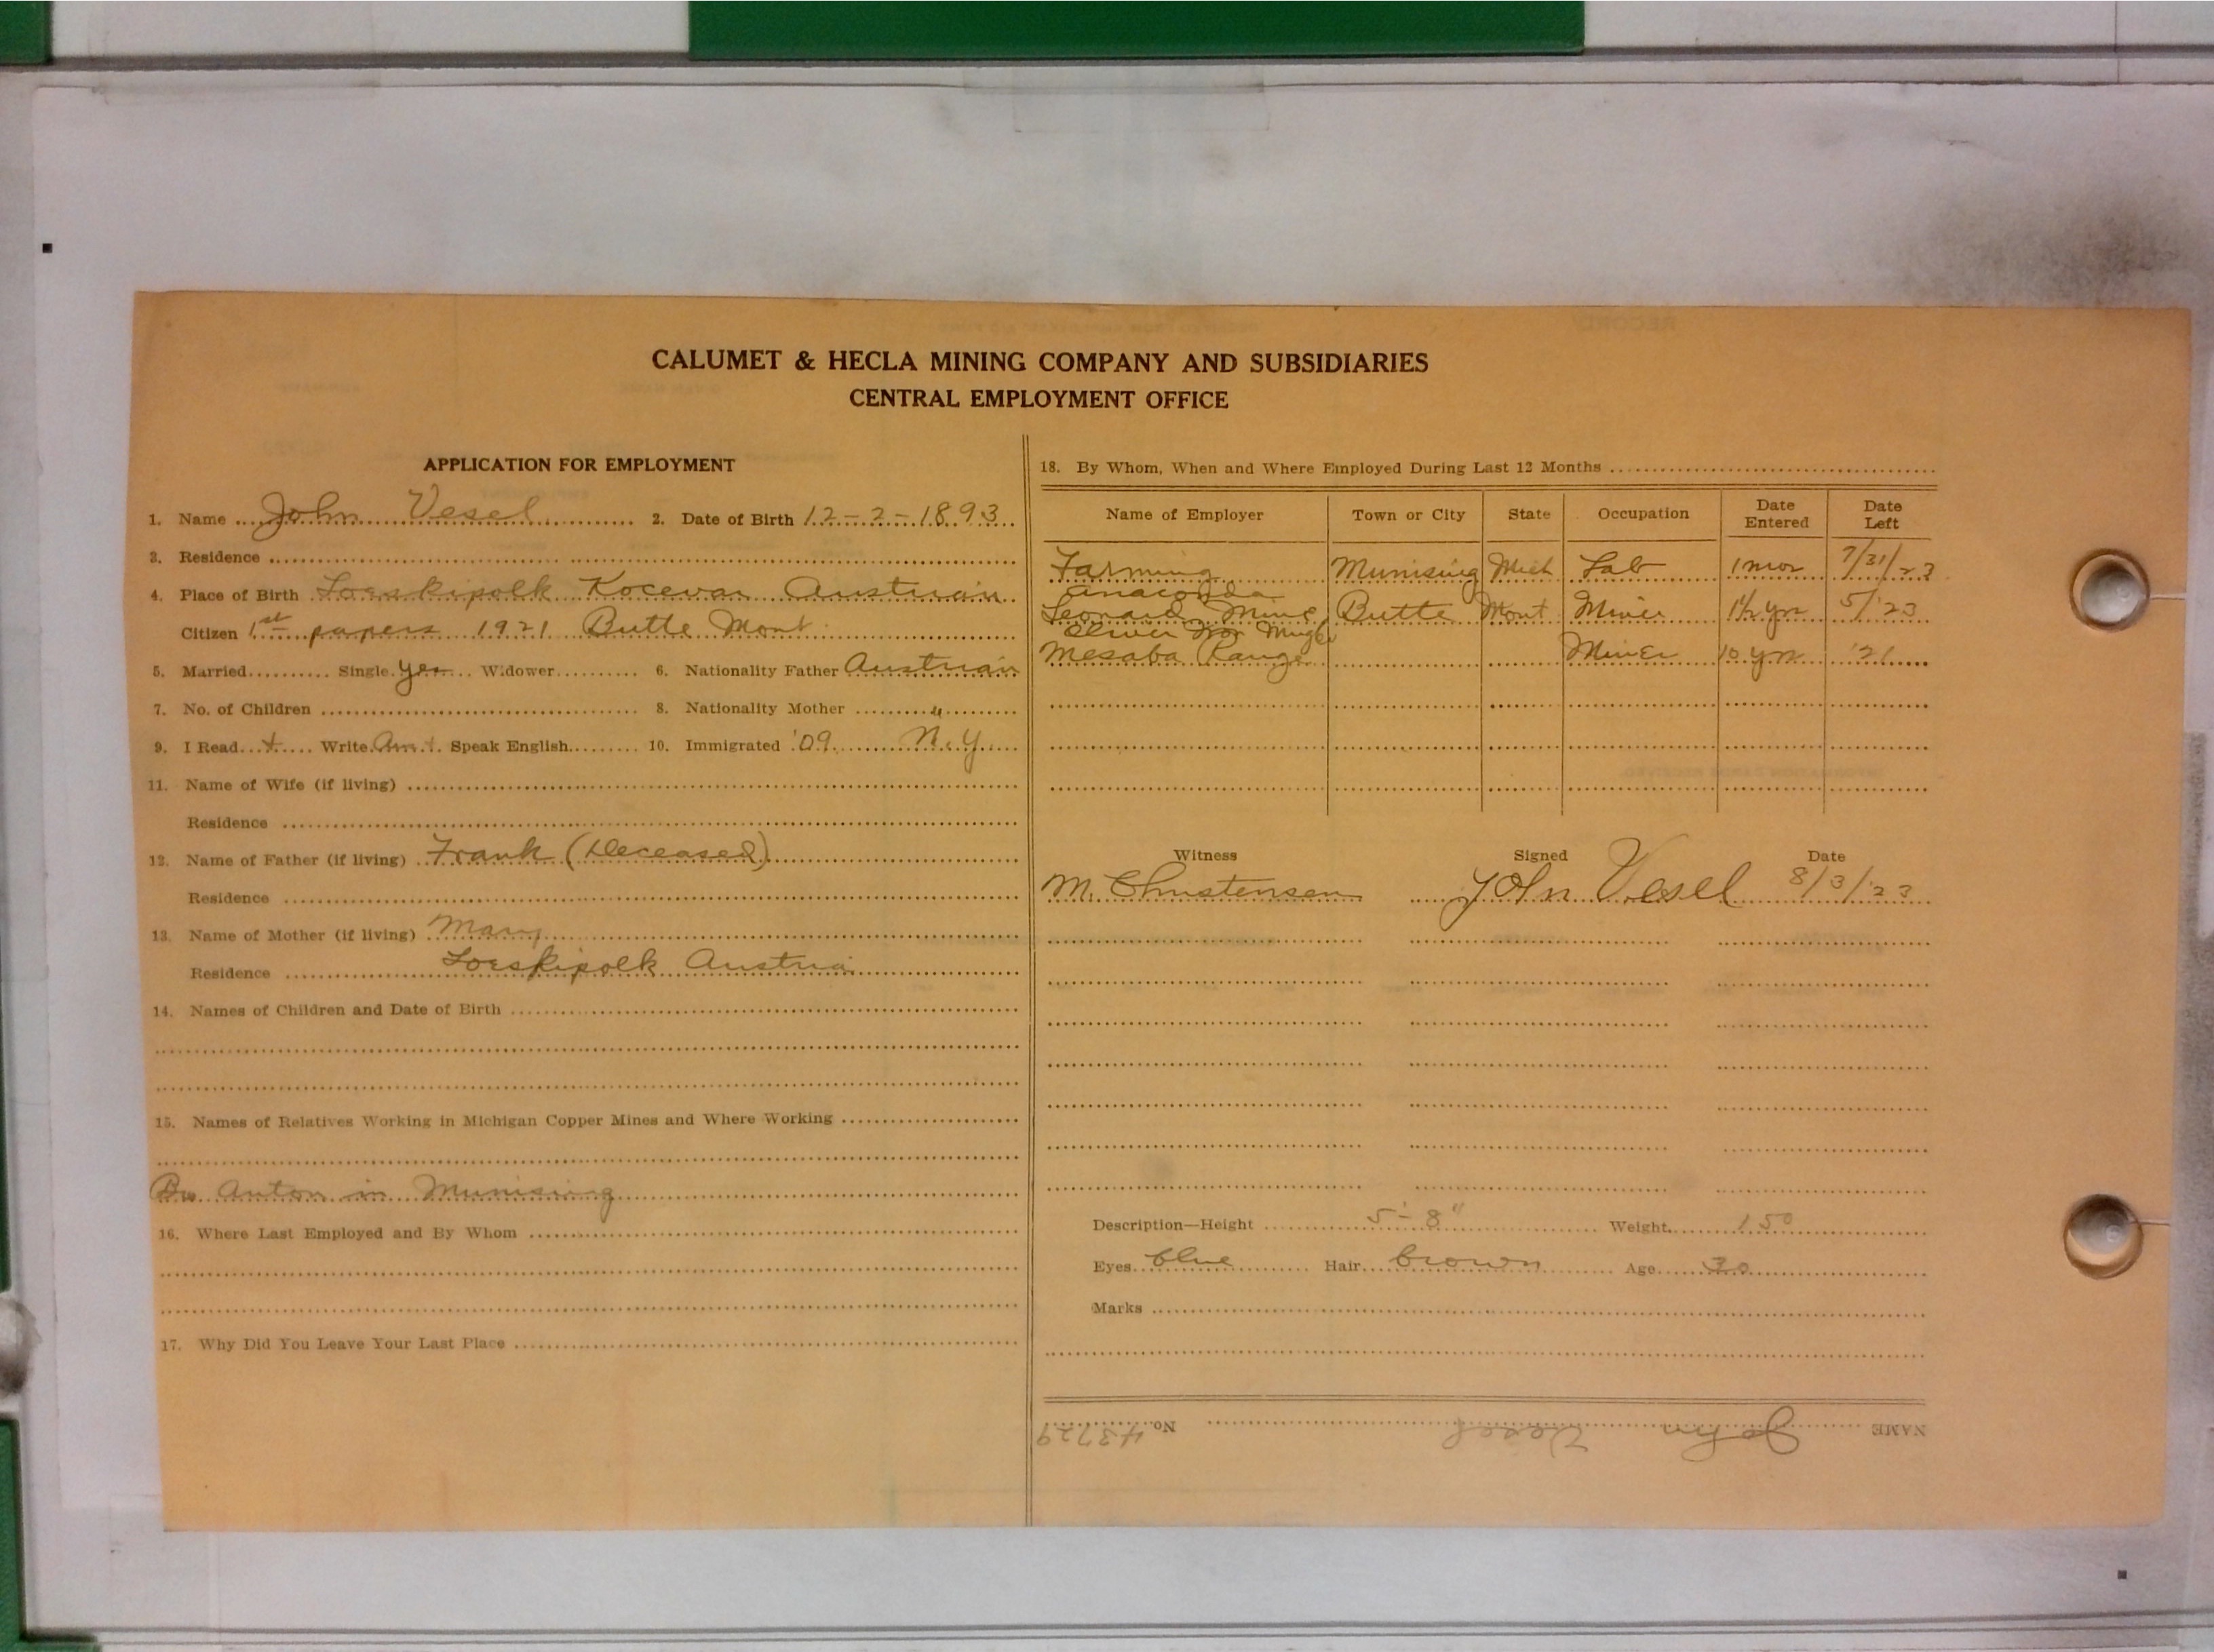 CALUMET & HECLA MINING COMPANY AND SUBSIDIARIES
CENTRAL EMPLOYMENT OFFICE
APPLICATION FOR EMPLOYMENT
1. Name John Vesel 2. Date of Birth 12-2-1893
3. Residence
4. Place of Birth Loeskipolk Kocevar Austrian
Citizen 1st papers 1921 Butte Mont
5. Married Single yes Widower 6. Nationality Father Austrian
7. No. of Children 8. Nationality Mother "
9. I Read + Write Speak English 10. Immigrated '09 N.Y
11. Name of Wife (if living)
Residence
12. Name of Father (if living) Frank (Deceased)
Residence
13. Name of Mother (if living) Mary
Residence Loeskipolk Austria
14. Names of Children and Date of Birth
15. Names of Relatives Working in Michigan Copper Mines and Where Working
Bro Anton in Munising
16. Where Last Employed and By Whom
17. Why Did You Leave Your Last Place
18. By Whom, When and Where Employed During Last 12 Months
Name of Employer Town or City State Occupation Date Entered Date Left
Farming Munising Mich Lab 1 mos 7/31/23
Anaconda
Leonard Mine Butte Mont Miner 1½ yrs 5/'23
Oliver Iron Mng Co
Mesaba Range Miner 10 yrs '21
Witness Signed Date
M. Christensen John Vesel 8/3/'23
Description—Height 5'-8" Weight 150
Eyes blue Hair brown Age 30
Marks
NAME John Vesel No. 43729